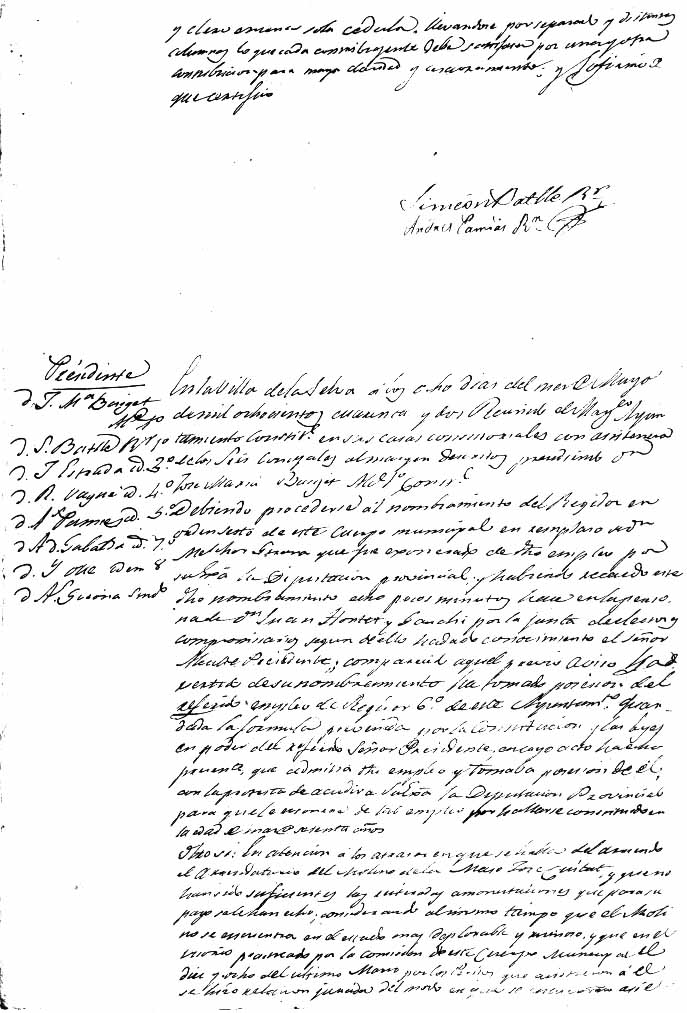 y clero en una sola cedula, llevandose por separado y distintas
columnas lo que cada contribuyente debe satisfacer por una y otra
contribucion para mayor claridad y y lo firmó
que certifico
Simeon Batlle Rr.
Andres Pamies Rn.
Presidente
D. J. Ma Buxget
D. S. Batlle Rr. 1o
D. J. Estrada id. 3o
D. R. Vaqué id. 4o
D. As. Pames id. 5o
D. A. id. 7o
D. J. idem 8
D. A. Sindo
En la Villa de la Selva á los ocho dias del mes de Mayo
de mil ochocientos cuarenta y dos Reunido el Magco Ayun
tamiento Constitl. en sus casas consistoriales con asistencia
de los Sres Concejales al margen descritos presidiendo Don
Jose Maria Buxget Alce. 1o Constl.
Debiendo procederse al nombramiento del Regidor en
orden sesto de este Cuerpo municipal en remplaso de Dn
Melchor que fue exonerado de dho empleo por
su Ex la Diputacion provincial, y habiendo recaido este
dho nombramiento echo pocos minutos hace en la perso
na de Dn Juan Hortet y por la junta de electores
compromisarios segun de ello ha dado conocimiento el señor
Alcalde Presidente, comparecido aquel previo aviso y ad
vertido de su nombramiento ha tomado posesion del
referido empleo de Regidor 6o de este Ayuntamto. Guar
dada la formula prevenida por la Constitucion y las leyes
en poder del referido Señor Presidente, en cuyo acto ha echo
presente, que admitia dho empleo y tomaba posesion de él,
con la protesta de acudir a su Exa la Diputacion Provincial
para que le exonere de tal empleo por hallarse constituido en
la edad de mas de sesenta años
Otro si: En atencion á los atrasos en que se halla del arriendo
el Arrendatario del Molino de la Maso Jose y que no
han sido suficientes las reiteradas amonestaciones que para su
pago se le han echo; considerando al mismo tiempo que el Moli
no se encuentra en el estado mas deplorable y ruinoso, y que en el
practicado por la comision de este Cuerpo Municipal el
dia y ocho del ultimo Marzo por los Peritos que asistieron á él
se hizo relacion jurada del modo en que se encontraba